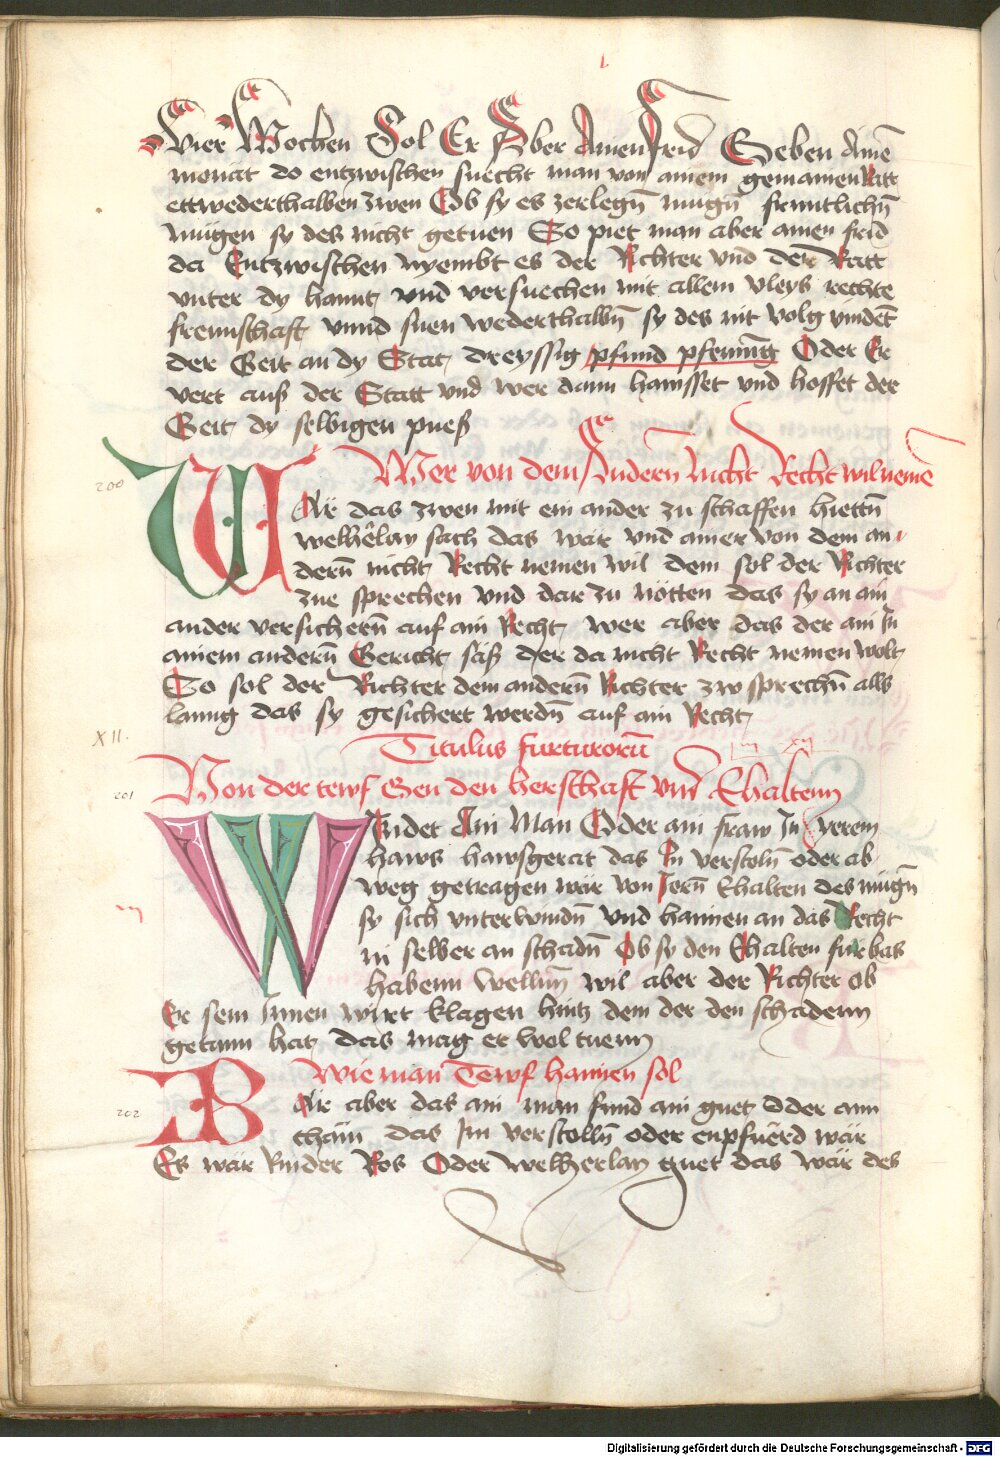 Vier Wochen Sol Er Aber Ainen Frid Geben Aine
monat do entzwischen suecht man von ainem gemainen Ratt
ettwederthalben zwen Ob sy es zerlegn mugn frnntlichn
mügen sy des nicht getuen So piet man aber ainen frid
da Entzwischen nyembt es der Richter vnd der Ratt
vnter dy hannt vnd versuechen mit allem vleys rechte
frewnschaft vnnd suen wederthalbn sy des nit volg vindet
der Geit an dy Stat dreyssig pfund pfenning Oder Er
vert auß der Statt vnd wer dann hawsset vnd hoffet der
Geit dy selbigen pueß
200
Wer von dem Andern Nicht Recht wil neme
WAr das zwen mit ein ander zu schaffen hiettn
welhêlay sach das wär vnd ainer von dem an
dern nicht Recht nemen wil dem sol der Richter
zue sprechen vnd dar zu nötten das sy an ain
ander versichern auf ain Recht wer aber das der ain In
ainem andern Gericht säß der da nicht Recht nemen wolt
So sol der Richter dem andern Richter zw sprechn alls
lanng das sy gesichert werdn auf ain Recht
XII.
Titulus furturorum
201
Von der tewf Gen den herschaft vnd Ehaltenn
WIndet Ain Man Oder ain fraw In yrem
haws hawsgerat das In verstoln oder ab
weg getragen wär von Iern Ehalten des mügn
sy sich vnterwindn vnd hannen an das Recht
in selber an schadn Ob sy den Ehalten fur bas
habenn Wellnn wil aber der Richter ob
Er sein Innen wirt klagen hintz dem der den schadenn
getann hat das mag er wol tuenn
Wie man Tewf hannen sol
202
WAr aber das ain man fund ain guet Oder ann
chäm das Im verstolln oder enpfuerd wär
Es wär Rinder Ros Oder welherlay guet das wär des
Digitalisierung gefördert durch die Deutsche Forschungsgemeinschaft - DFG